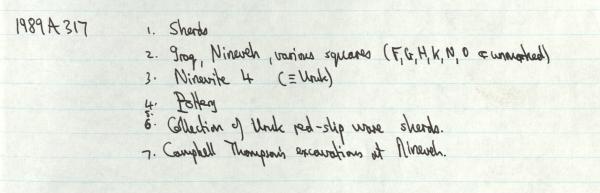 1989A317 1. Sherds
2. Iraq, Nineveh, various squares (F, G, H, K, N, O & unmarked)
3. Ninevite 4 (≡ Uruk)
4. Pottery
5.
6. Collection of Uruk red-slip ware sherds.
7. Campbell Thompson's excavations at Nineveh.